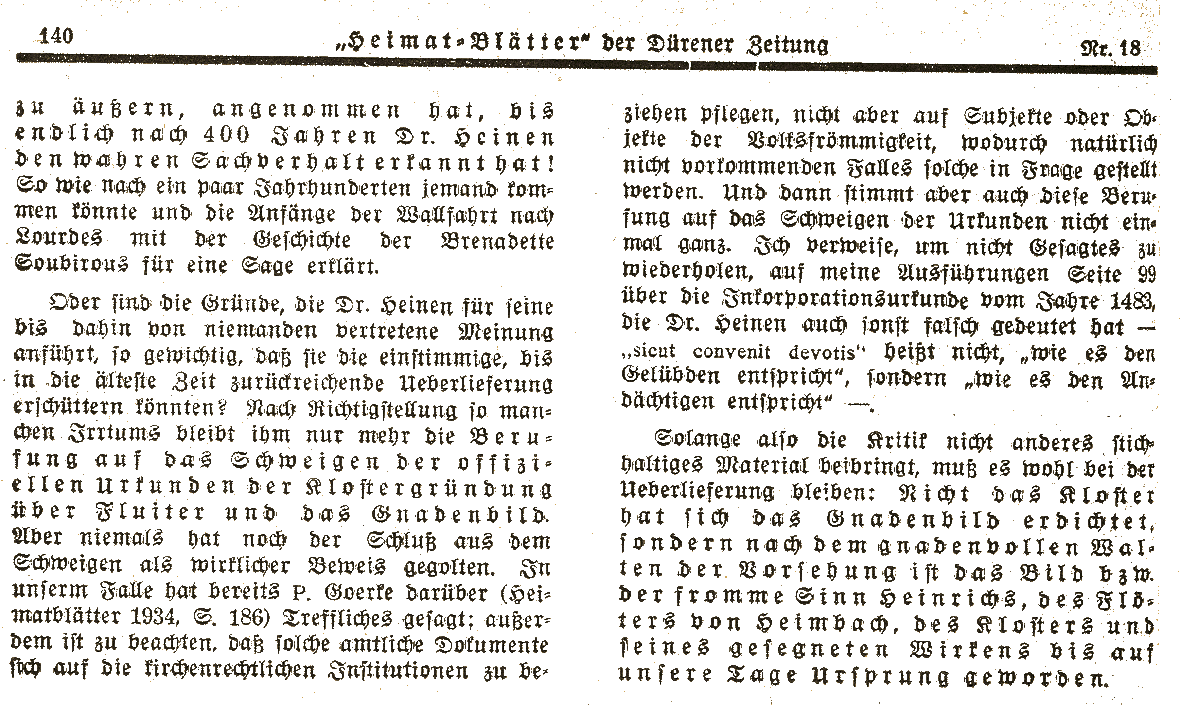 140
„Heimat-Blätter“ der Dürener Zeitung
Nr. 18
zu äußern, angenommen hat, bis
endlich nach 400 Jahren Dr. Heinen
den wahren Sachverhalt erkannt hat!
So wie nach ein paar Jahrhunderten jemand kom-
men könnte und die Anfänge der Wallfahrt nach
Lourdes mit der Geschichte der Brenadette
Soubirous für eine Sage erklärt.
Oder sind die Gründe, die Dr. Heinen für seine
bis dahin von niemanden vertretene Meinung
anführt, so gewichtig, daß sie die einstimmige, bis
in die älteste Zeit zurückreichende Ueberlieferung
erschüttern könnten? Nach Richtigstellung so man-
chen Irrtums bleibt ihm nur mehr die Beru-
fung auf das Schweigen der offizi-
ellen Urkunden der Klostergründung
über Fluiter und das Gnadenbild.
Aber niemals hat noch der Schluß aus dem
Schweigen als wirklicher Beweis gegolten. In
unserm Falle hat bereits P. Goerke darüber (Hei-
matblätter 1934, S. 186) Treffliches gesagt; außer-
dem ist zu beachten, daß solche amtliche Dokumente
sich auf die kirchenrechtlichen Institutionen zu be-
ziehen pflegen, nicht aber auf Subjekte oder Ob-
jekte der Volksfrömmigkeit, wodurch natürlich
nicht vorkommenden Falles solche in Frage gestellt
werden. Und dann stimmt aber auch diese Beru-
fung auf das Schweigen der Urkunden nicht ein-
mal ganz. Ich verweise, um nicht Gesagtes zu
wiederholen, auf meine Ausführungen Seite 99
über die Inkorporationsurkunde vom Jahre 1483,
die Dr. Heinen auch sonst falsch gedeutet hat —
„sicut convenit devotis“ heißt nicht, „wie es den
Gelübden entspricht“, sondern „wie es den An-
dächtigen entspricht“ —.
Solange also die Kritik nicht anderes stich-
haltiges Material beibringt, muß es wohl bei der
Ueberlieferung bleiben: Nicht das Kloster
hat sich das Gnadenbild erdichtet,
sondern nach dem gnadenvollen Wal-
ten der Vorsehung ist das Bild bzw.
der fromme Sinn Heinrichs, des Flö-
ters von Heimbach, des Klosters und
seines gesegneten Wirkens bis auf
unsere Tage Ursprung geworden.